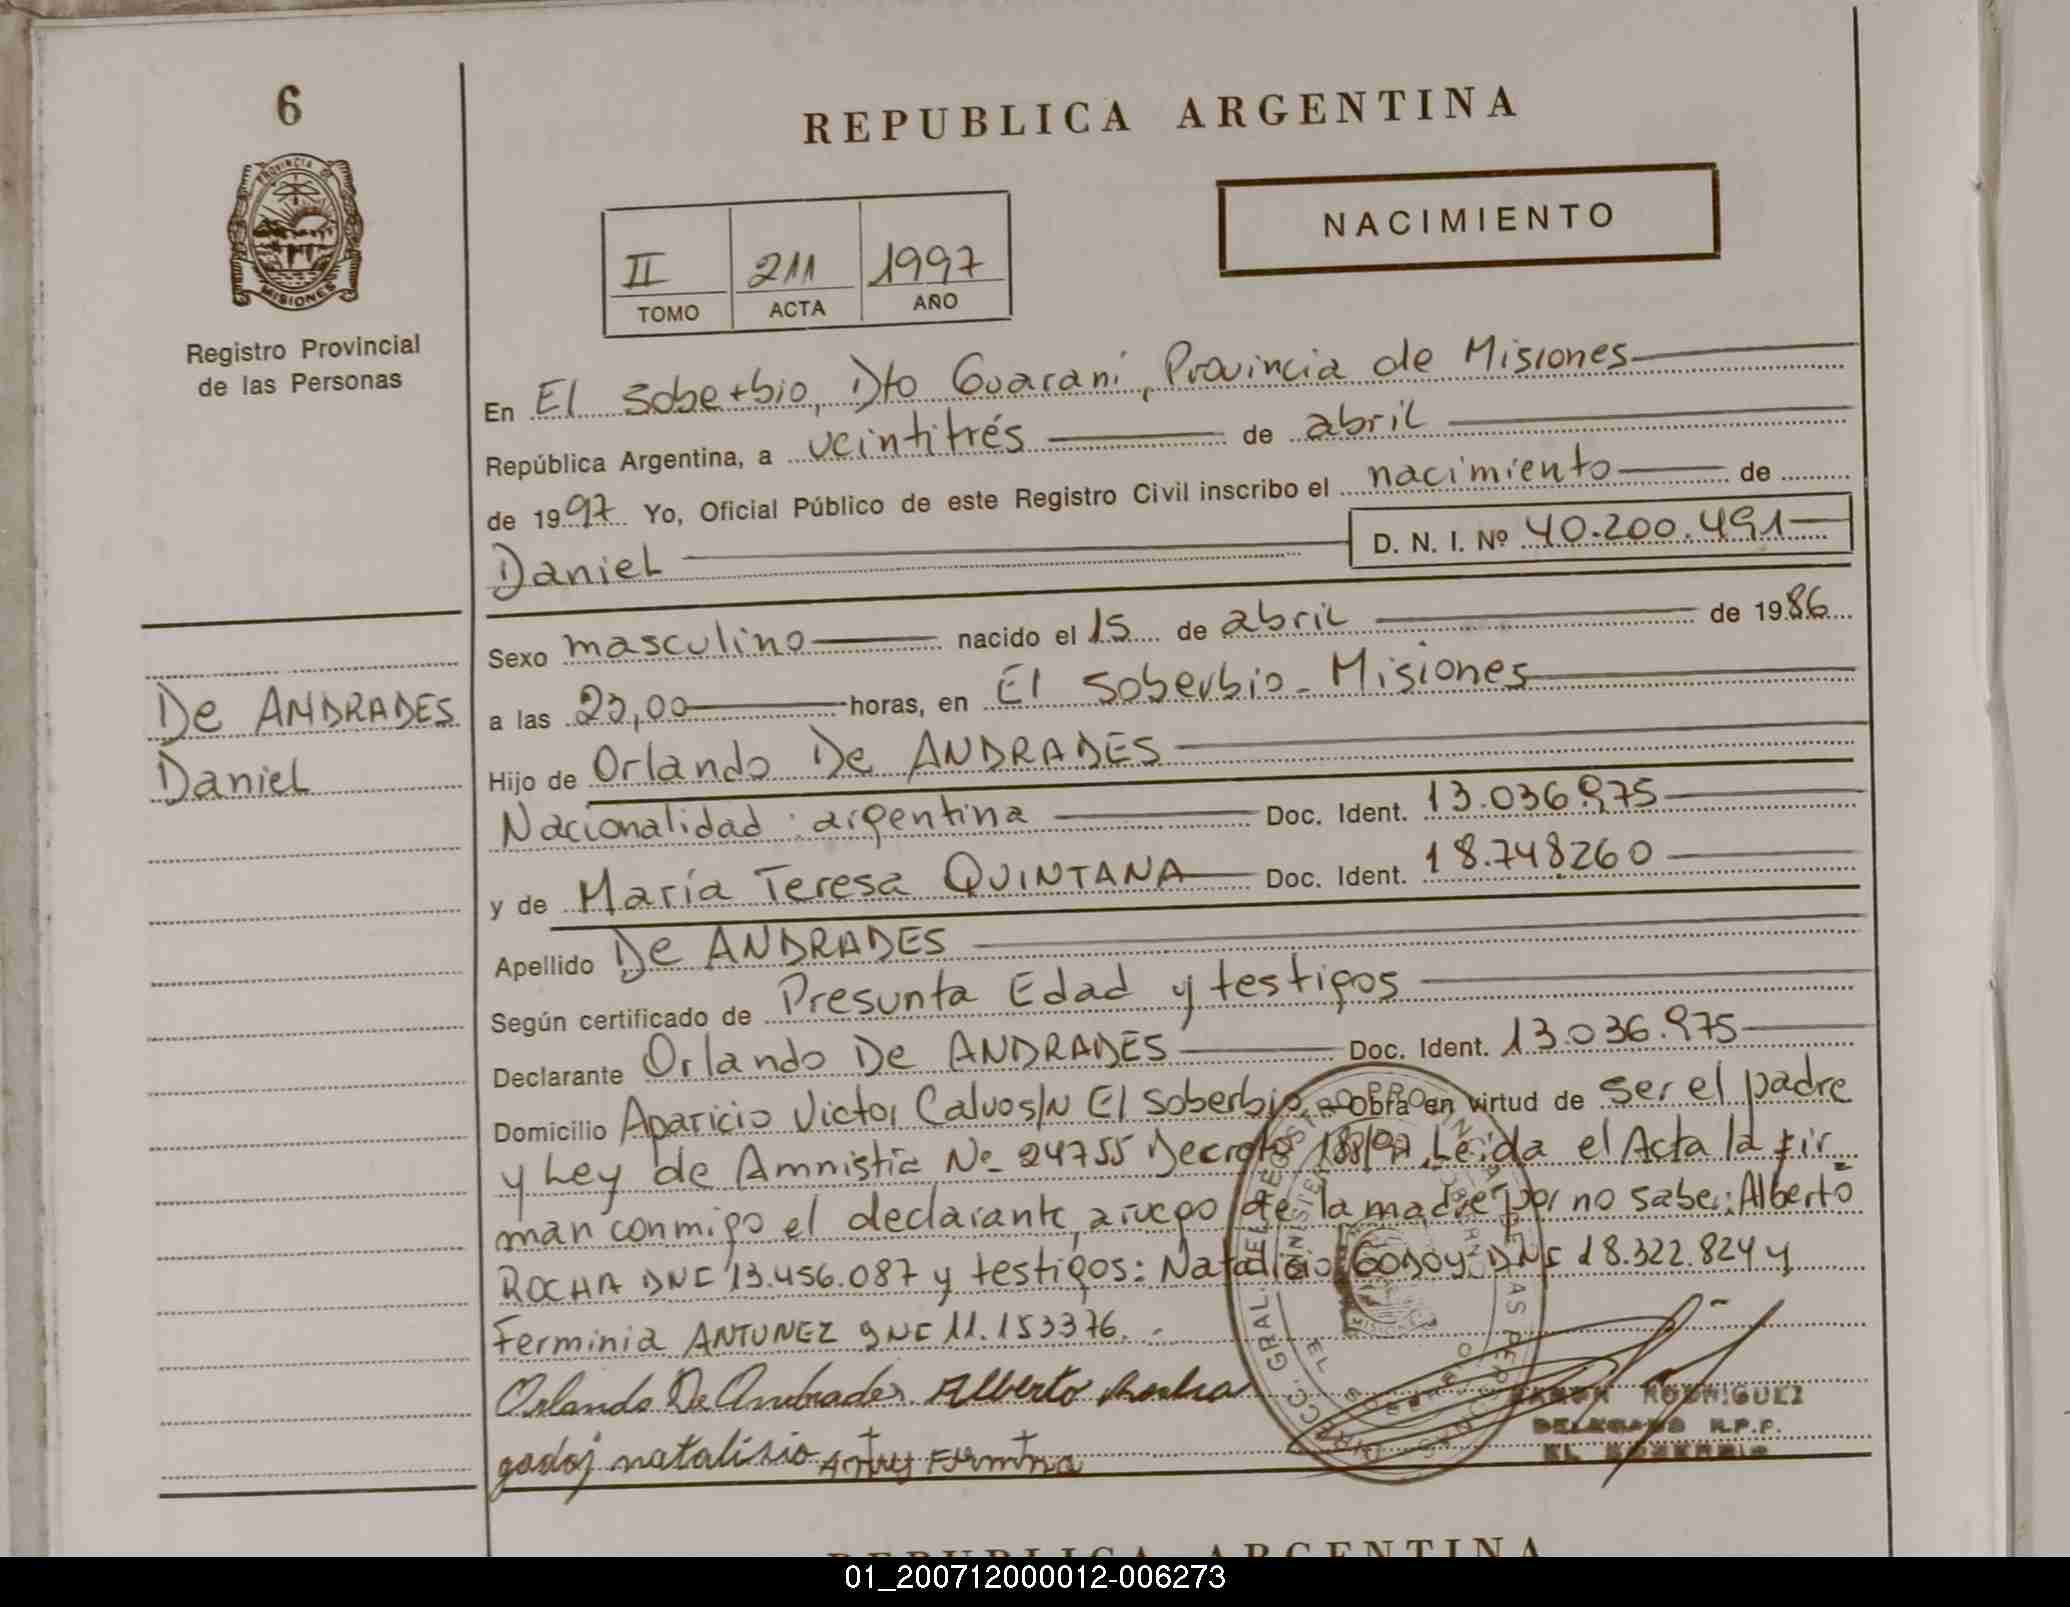 6
REPUBLICA ARGENTINA
PROVINCIA DE
MISIONES
NACIMIENTO
II 211 1997
TOMO ACTA AÑO
Registro Provincial
de las Personas
En El Soberbio, Dto Guaraní, Provincia de Misiones
República Argentina, a veintitrés de abril
de 1997 Yo, Oficial Público de este Registro Civil inscribo el nacimiento de
Daniel D. N. I. Nº 40.200.491
Sexo masculino nacido el 15 de abril de 1986
De ANDRADES
Daniel
a las 23,00 horas, en El Soberbio - Misiones
Hijo de Orlando De ANDRADES
Nacionalidad argentina Doc. Ident. 13.036.975
y de María Teresa QUINTANA Doc. Ident. 18.748260
Apellido De ANDRADES
Según certificado de Presunta Edad y testigos
Declarante Orlando De ANDRADES Doc. Ident. 13.036.975
Domicilio Aparicio Victor Calvo s/N El Soberbio Obra en virtud de ser el padre
y Ley de Amnistia Nº 24755 Decreto 188/97. Leida el Acta la fir
man conmigo el declarante, a ruego de la madre por no saber: Alberto
ROCHA DNI 13.456.087 y testigos: Natalicio GODOY DNI 18.322.824 y
Ferminia ANTUNEZ DNI 11.153376.
Orlando De Andrades Alberto Rocha
godoj natalisio
RAMON RODRIGUEZ
DELEGADO R.P.P.
EL SOBERBIO
REPUBLICA ARGENTINA
01_200712000012-006273